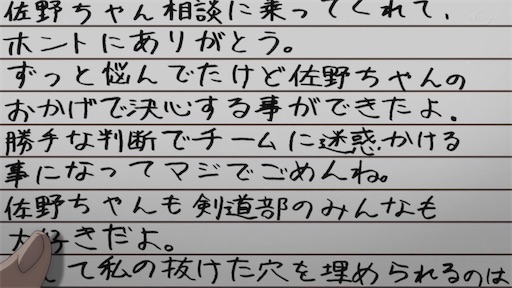 佐野ちゃん相談に乗ってくれて、
ホントにありがとう。
ずっと悩んでたけど佐野ちゃんの
おかげで決心する事ができたよ。
勝手な判断でチームに迷惑かける
事になってマジでごめんね。
佐野ちゃんも剣道部のみんなも
大好きだよ。
て私の抜けた穴を埋められるのは